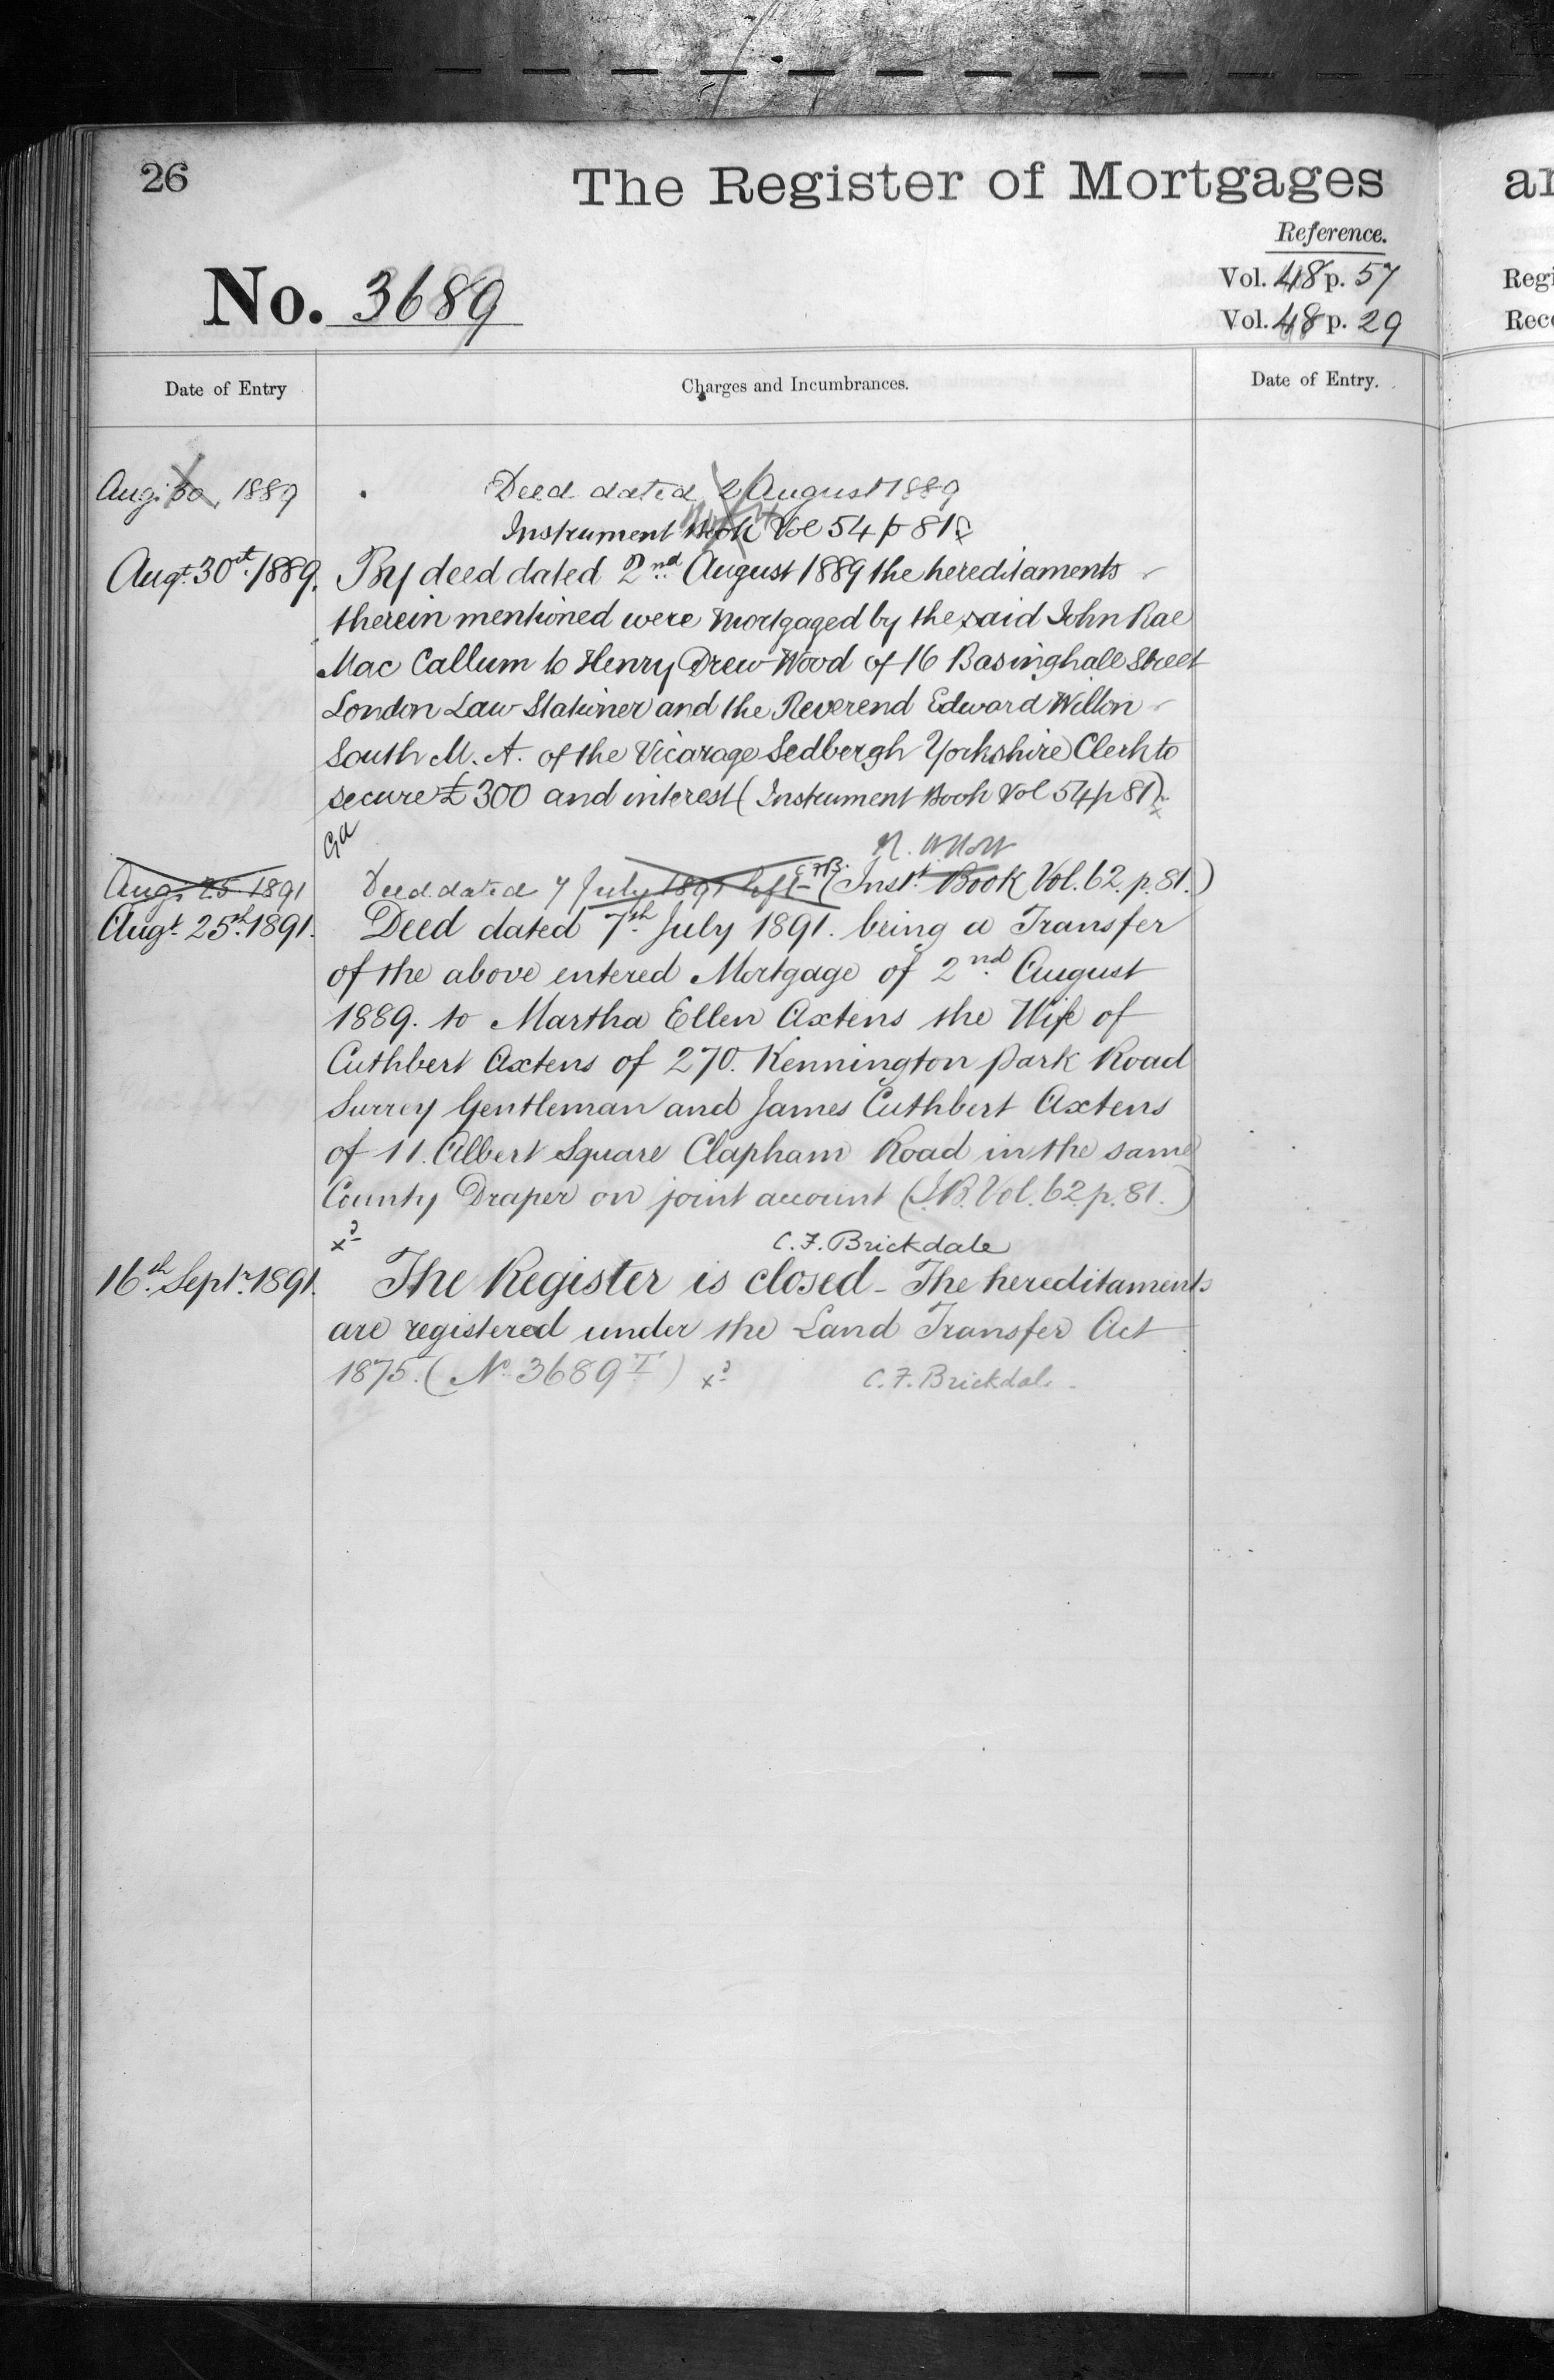 26
The Register of Mortgages
Reference.
No. 3689
Vol. 48 p. 57
Vol. 48 p. 29
Date of Entry
Charges and Incumbrances.
Date of Entry.
Aug. 30, 1889
Deed dated 2 August 1889
Instrument Book Vol 54 p 81
Augt. 30th. 1889.
By deed dated 2nd August 1889 the hereditaments
therein mentioned were Mortgaged by the said John Rae
Mac Callum to Henry Drew Wood of 16 Basinghall Street
London Law Stationer and the Reverend Edward Wilton
South M. A. of the Vicarage Sedbergh Yorkshire Clerk to
secure £300 and interest (Instrument Book Vol 54 p 81).
Aug. 25 1891
Deed dated 7 July 1891 left C.F.B. (Inst. Book Vol. 62. p. 81.)
Augt. 25th. 1891.
Deed dated 7th July 1891. being a Transfer
of the above entered Mortgage of 2nd August
1889. to Martha Ellen Axtens the Wife of
Cuthbert Axtens of 270. Kennington Park Road
Surrey Gentleman and James Cuthbert Axtens
of 11. Albert Square Clapham Road in the same
County Draper on joint account (I.B. Vol. 62. p. 81.)
xd
C. F. Brickdale
16th. Septr. 1891.
The Register is closed - The hereditaments
are registered under the Land Transfer Act
1875. (No 3689 T) xd C. F. Brickdale
ar
Regi
Reco